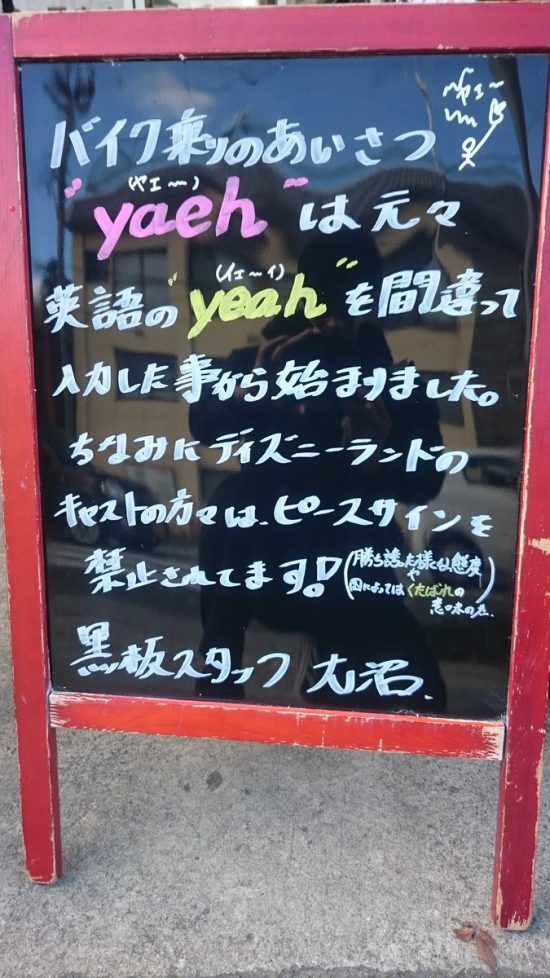 ヤエー
バイク乗りのあいさつ
(ヤエー)
"yaeh"は元々
(イェーイ)
英語の"yeah"を間違って
入力した事から始まりました。
ちなみにディズニーランドの
キャストの方々は、ピースサインを
禁止されてます!
(勝ち誇った様な態度や
国によってはくたばれの
意味の為)
黒板スタッフ 大沼.